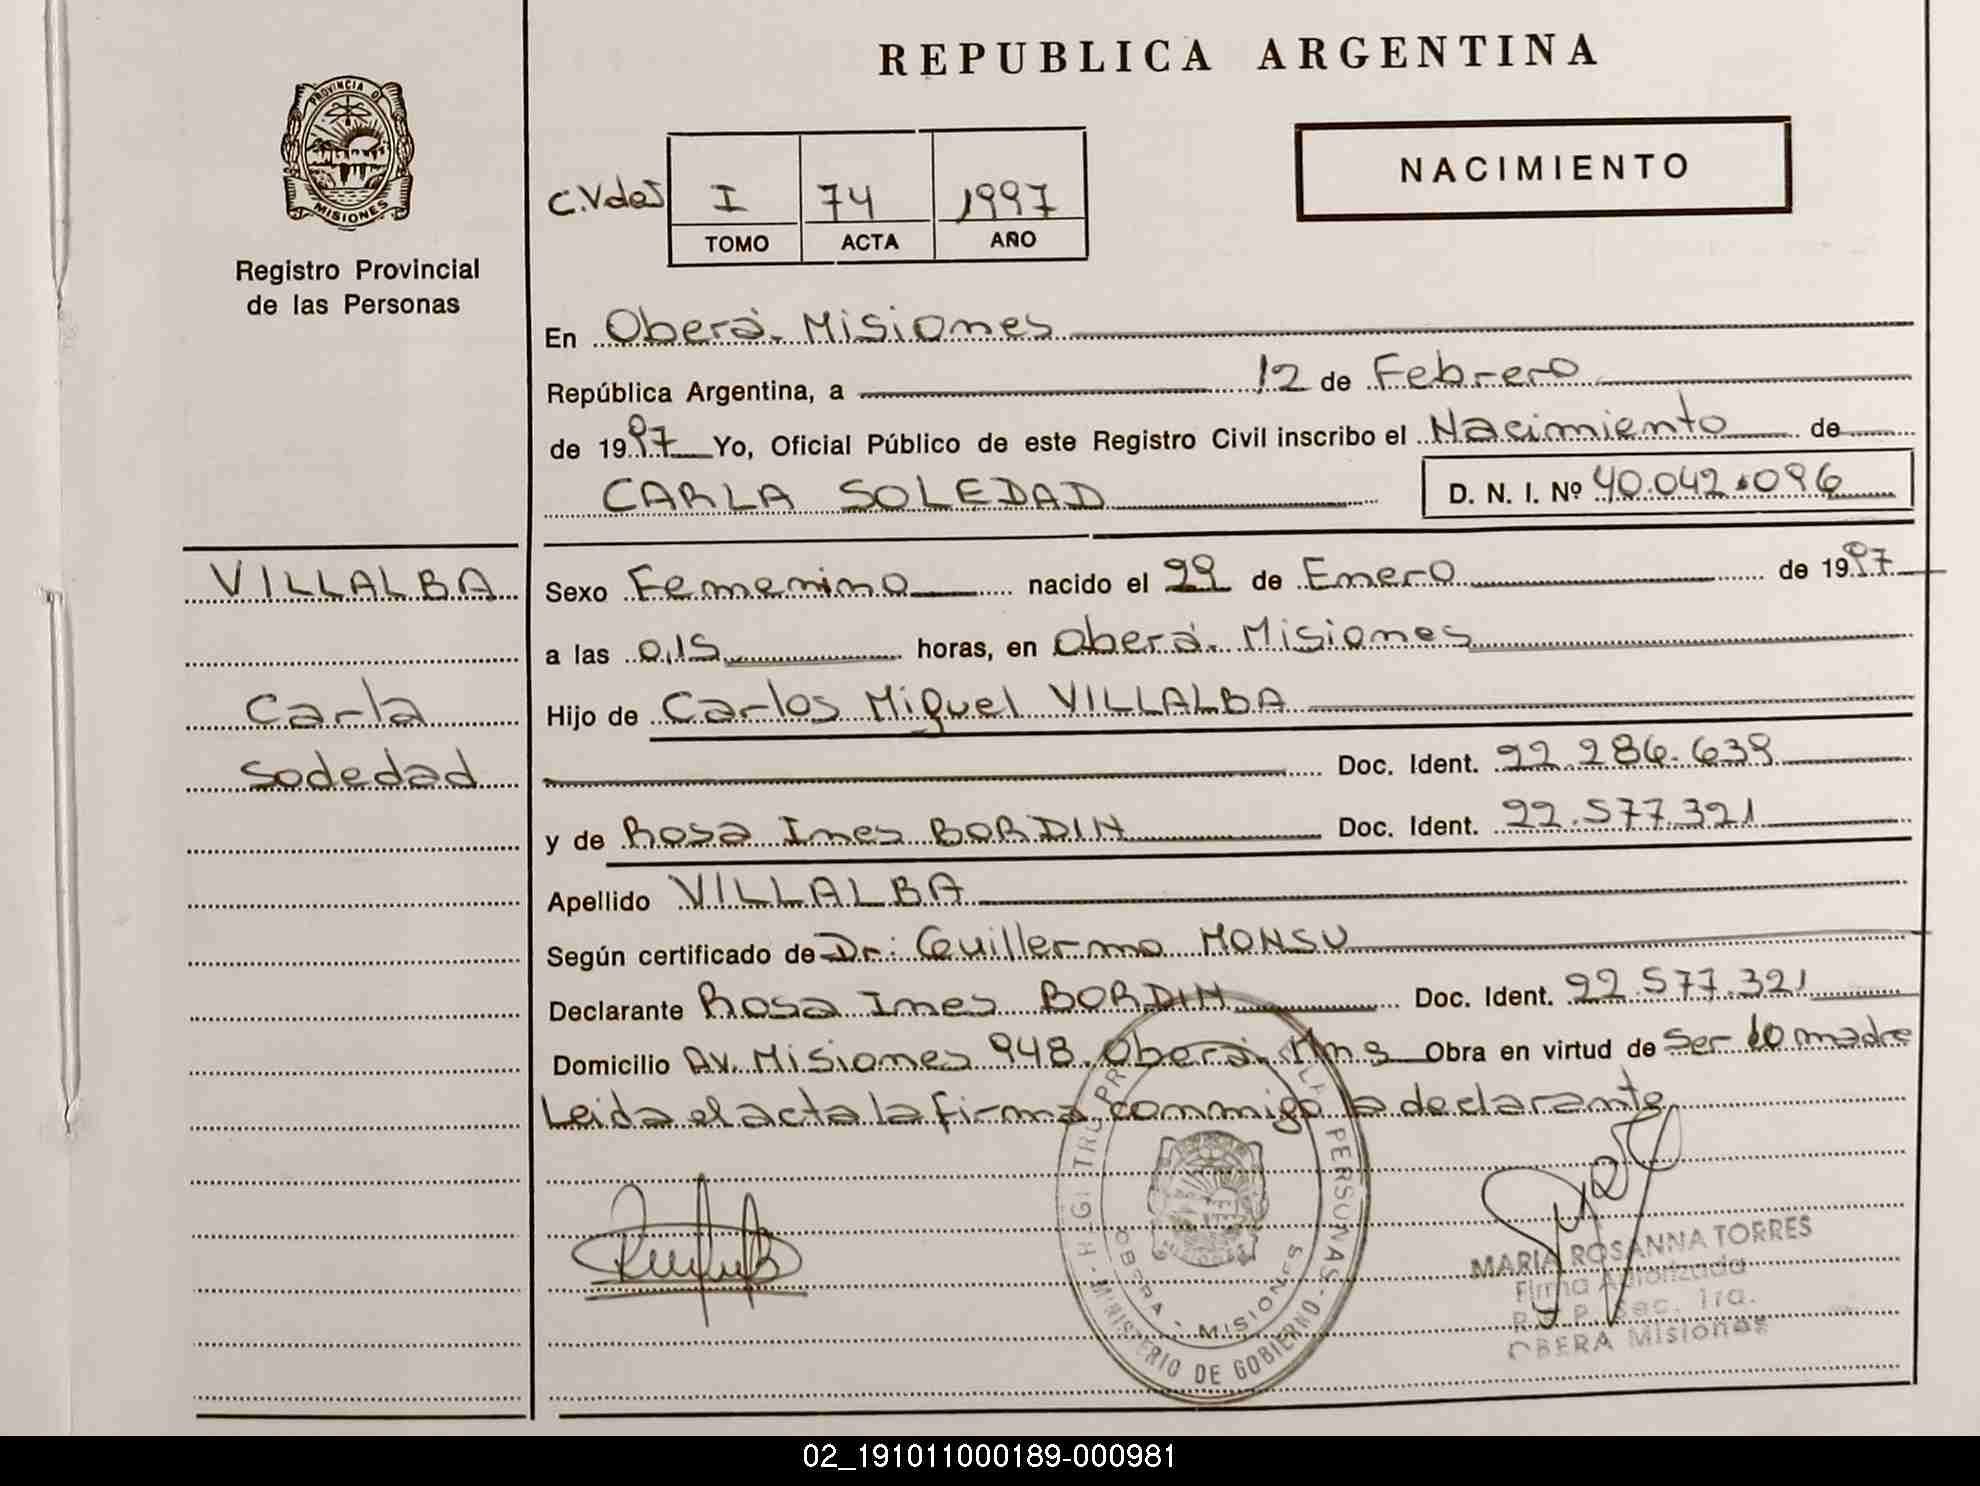 REPUBLICA ARGENTINA
PROVINCIA D
MISIONES
Registro Provincial
de las Personas
NACIMIENTO
C.VdeJ I 74 1997
TOMO ACTA AÑO
En Oberá. Misiones
República Argentina, a 12 de Febrero
de 1997 Yo, Oficial Público de este Registro Civil inscribo el Nacimiento de
CARLA SOLEDAD D. N. I. Nº 40.042.096
VILLALBA
Carla
Sodedad
Sexo Femenino nacido el 29 de Enero de 1997
a las 0,15 horas, en Oberá. Misiones
Hijo de Carlos Miguel VILLALBA
Doc. Ident. 22.286.639
y de Rosa Ines BORDIN Doc. Ident. 22.577.321
Apellido VILLALBA
Según certificado de Dr: Guillermo MONSU
Declarante Rosa Ines BORDIN Doc. Ident. 22.577.321
Domicilio Av. Misiones 948. Oberá. Mns Obra en virtud de ser madre
Leida el acta la firma conmigo la declarante
PERSONAS - MINISTERIO DE GOBIERNO
OBERA - MISIONES
MARIA ROSANNA TORRES
Firma Autorizada
R. P. P. Sec. 1ra.
OBERA Misiones
02_191011000189-000981